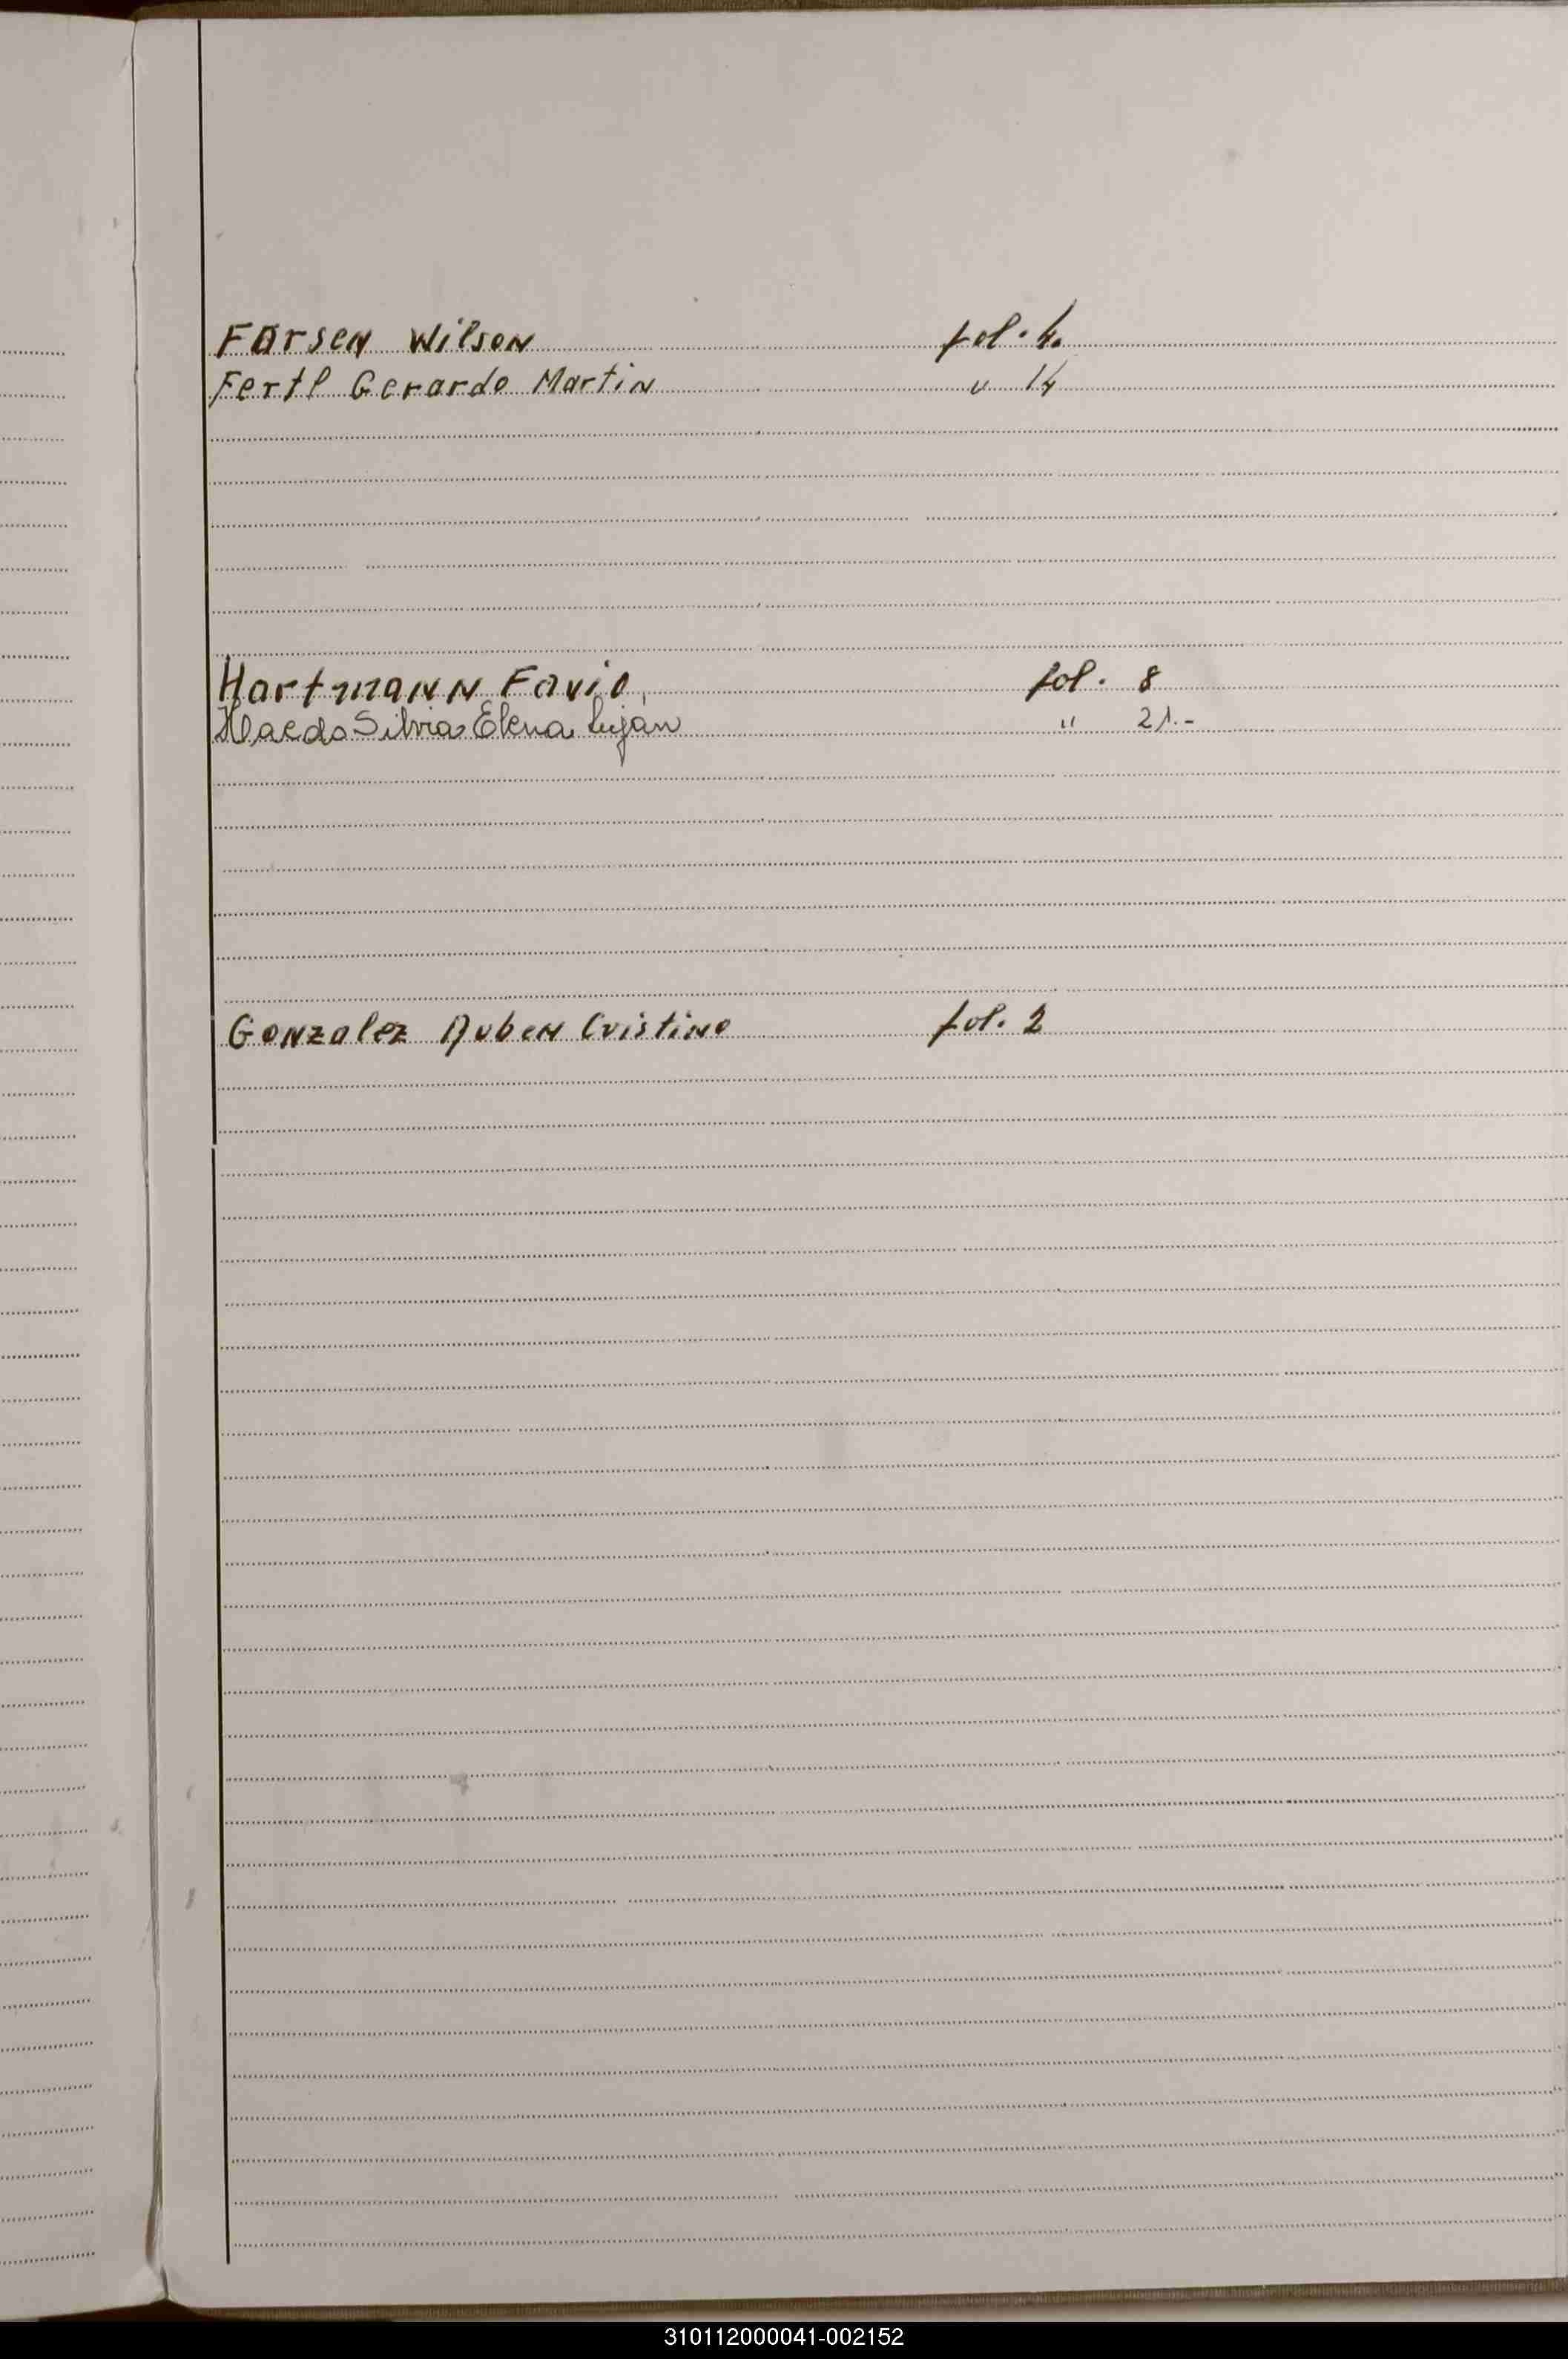 Farsen Wilson fol. 4.
Fertl Gerardo Martin " 14
Hartmann Favio, fol. 8
Haedo Silvia Elena Luján " 21.-
Gonzalez Ruben Cristino fol. 2
310112000041-002152